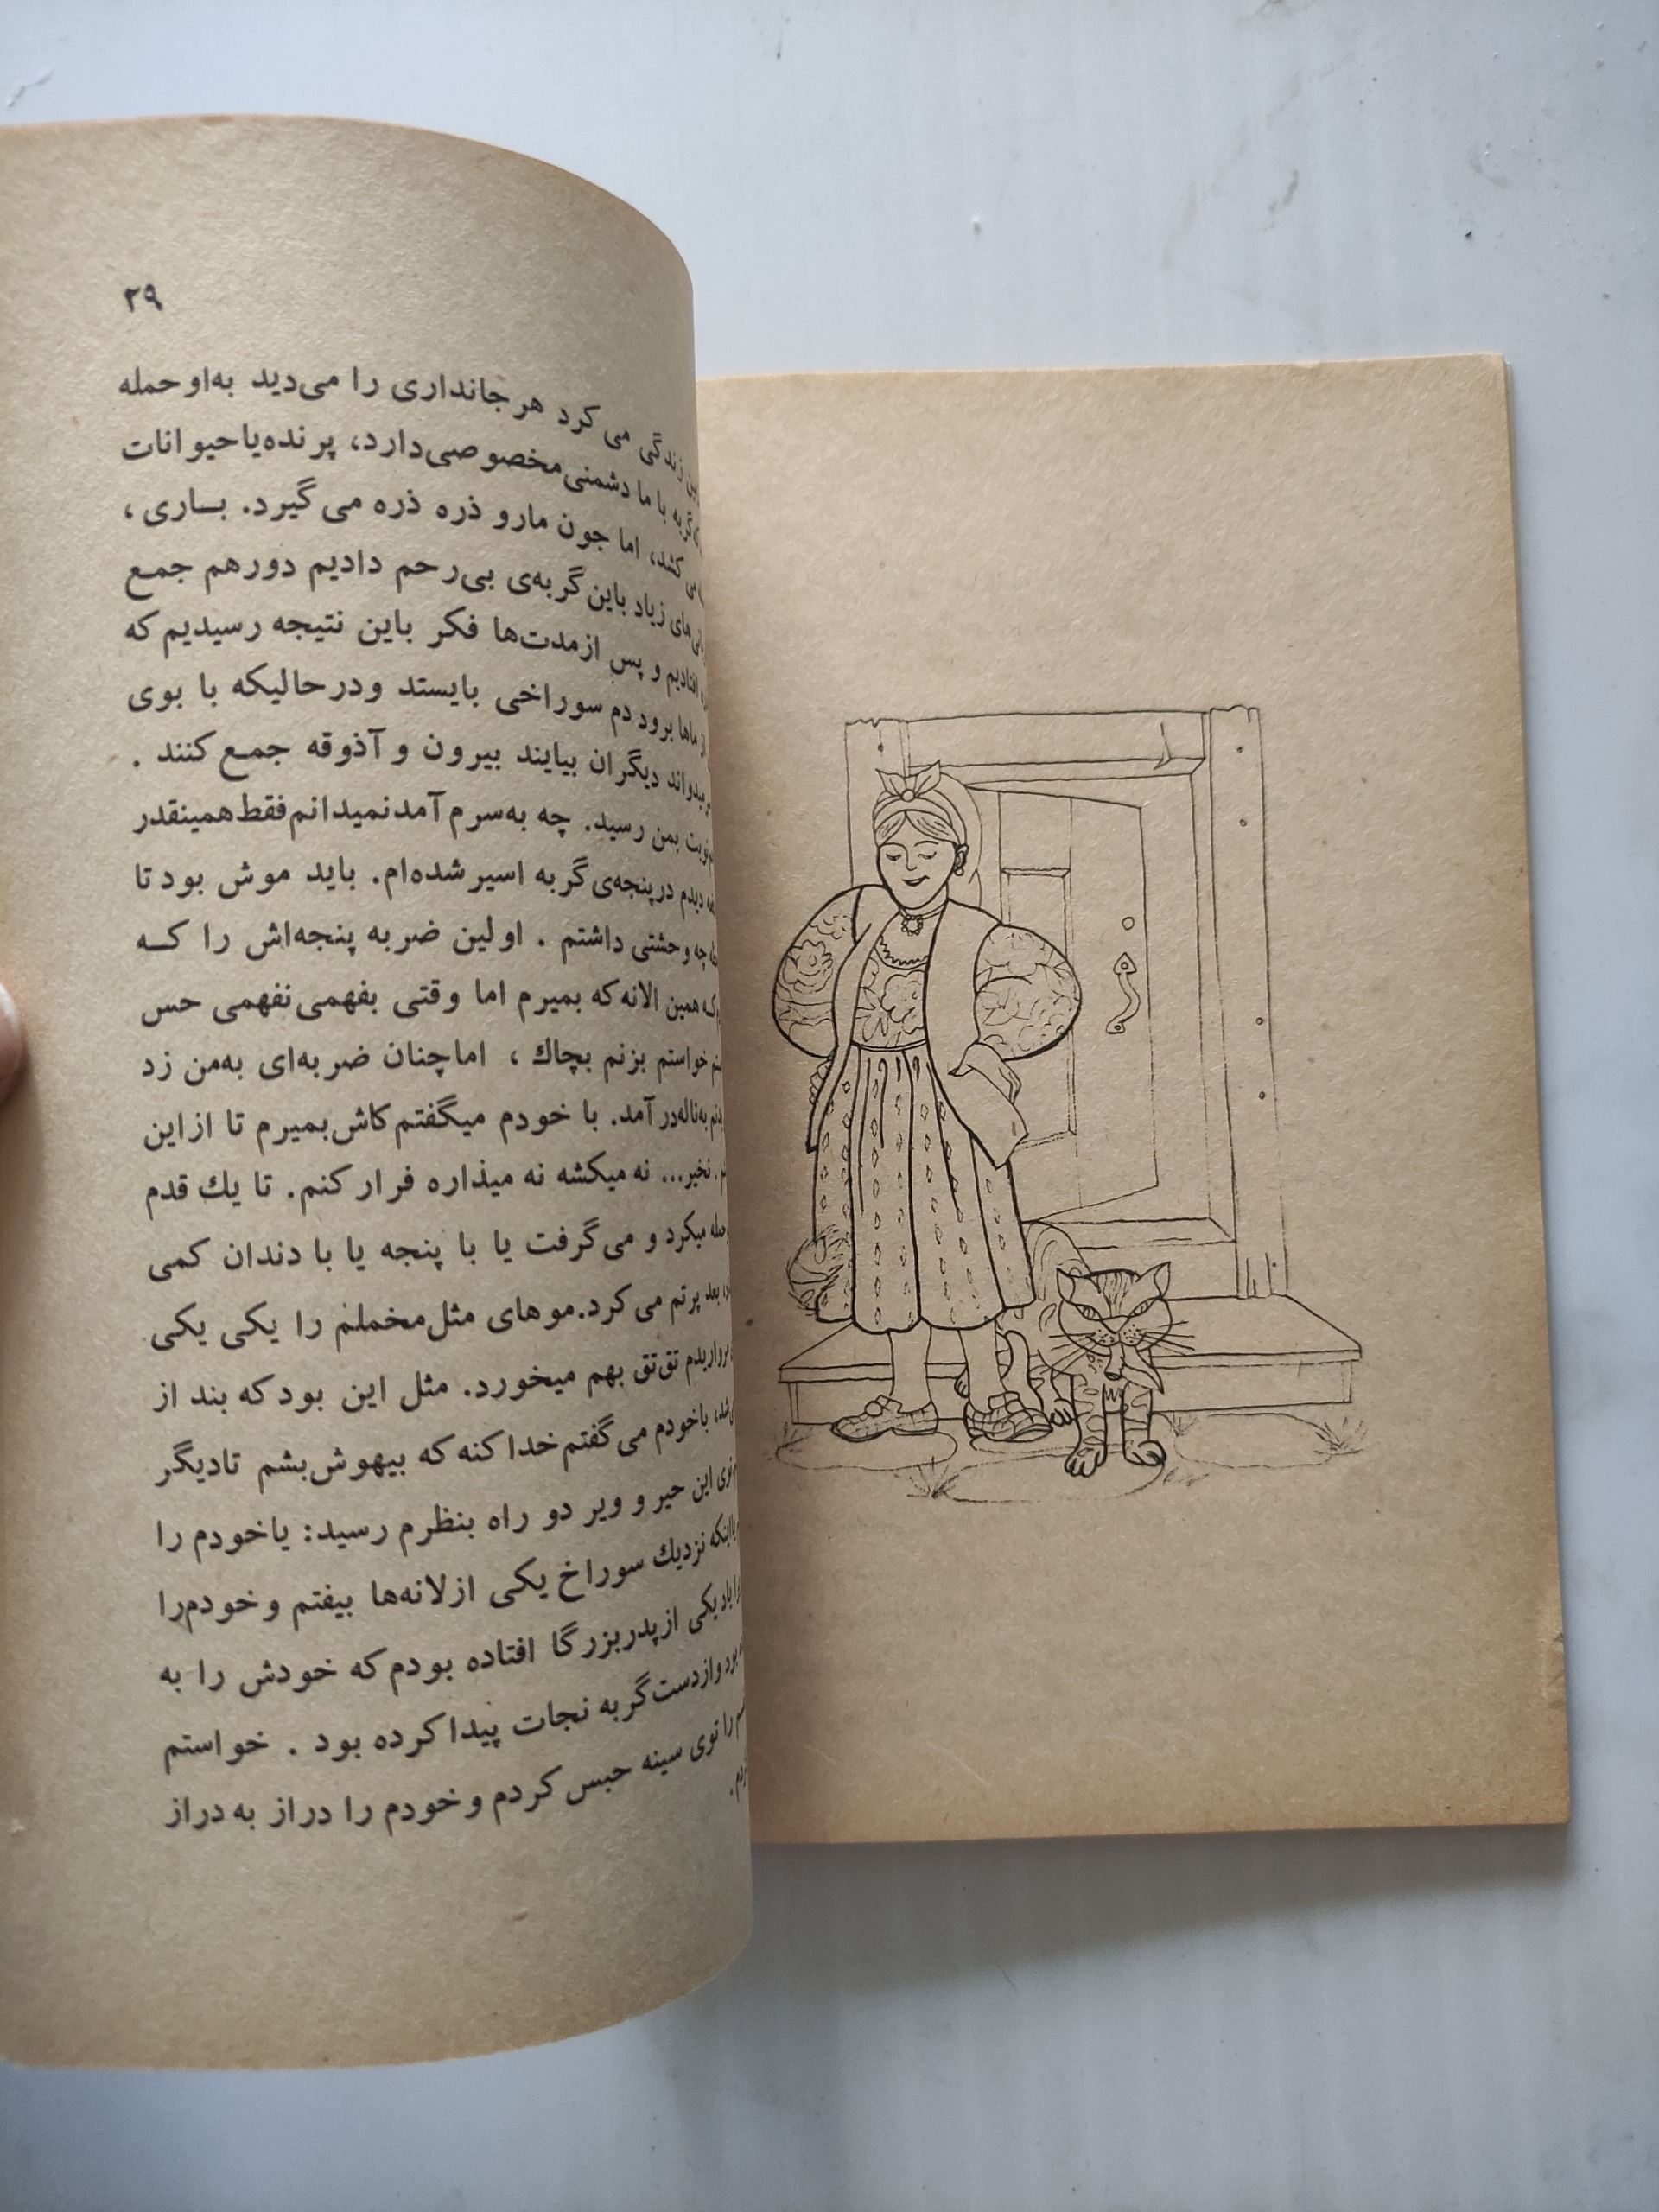 ۲۹
زندگی می کرد هر جانداری را می‌دید به‌او حمله
گربه با ما دشمنی مخصوصی‌دارد، پرنده‌یاحیوانات
می کشد، اما جون مارو ذره ذره می گیرد. بساری ،
های زیاد باین گربه‌ی بی‌رحم دادیم دورهم جمع
افتادیم و پس ازمدت‌ها فکر باین نتیجه رسیدیم که
از ماها برود دم سوراخی بایستد ودرحالیکه با بوی
بدواند دیگران بیایند بیرون و آذوقه جمع کنند .
نوبت بمن رسید. چه به‌سرم آمدنمیدانم فقط همینقدر
دیدم درپنجه‌ی گربه اسیر شده‌ام. باید موش بود تا
چه وحشتی داشتم . اولین ضربه پنجه‌اش را کـه
که همین الانه که بمیرم اما وقتی بفهمی نفهمی حس
خواستم بزنم بچاك ، اما چنان ضربه‌ای به‌من زد
به‌ناله‌در آمد. با خودم میگفتم کاش بمیرم تا ازاین
نخیر... نه میکشه نه میذاره فرار کنم. تا یك قدم
میکرد و می گرفت یا با پنجه یا با دندان کمی
بعد پرتم می کرد. موهای مثل مخملم را یکی یکی
مرواریدم تق‌تق بهم میخورد. مثل این بود که بند از
باخودم می گفتم خدا کنه که بیهوش بشم تادیگر
توی این حیر و ویر دو راه بنظرم رسید: یاخودم را
یااینکه نزدیك سوراخ یکی ازلانه‌ها بیفتم و خودم‌را
یاد یکی از پدربزرگا افتاده بودم که خودش را به
بود وازدست گربه نجات پیدا کرده بود . خواستم
را توی سینه حبس کردم و خودم را دراز به دراز